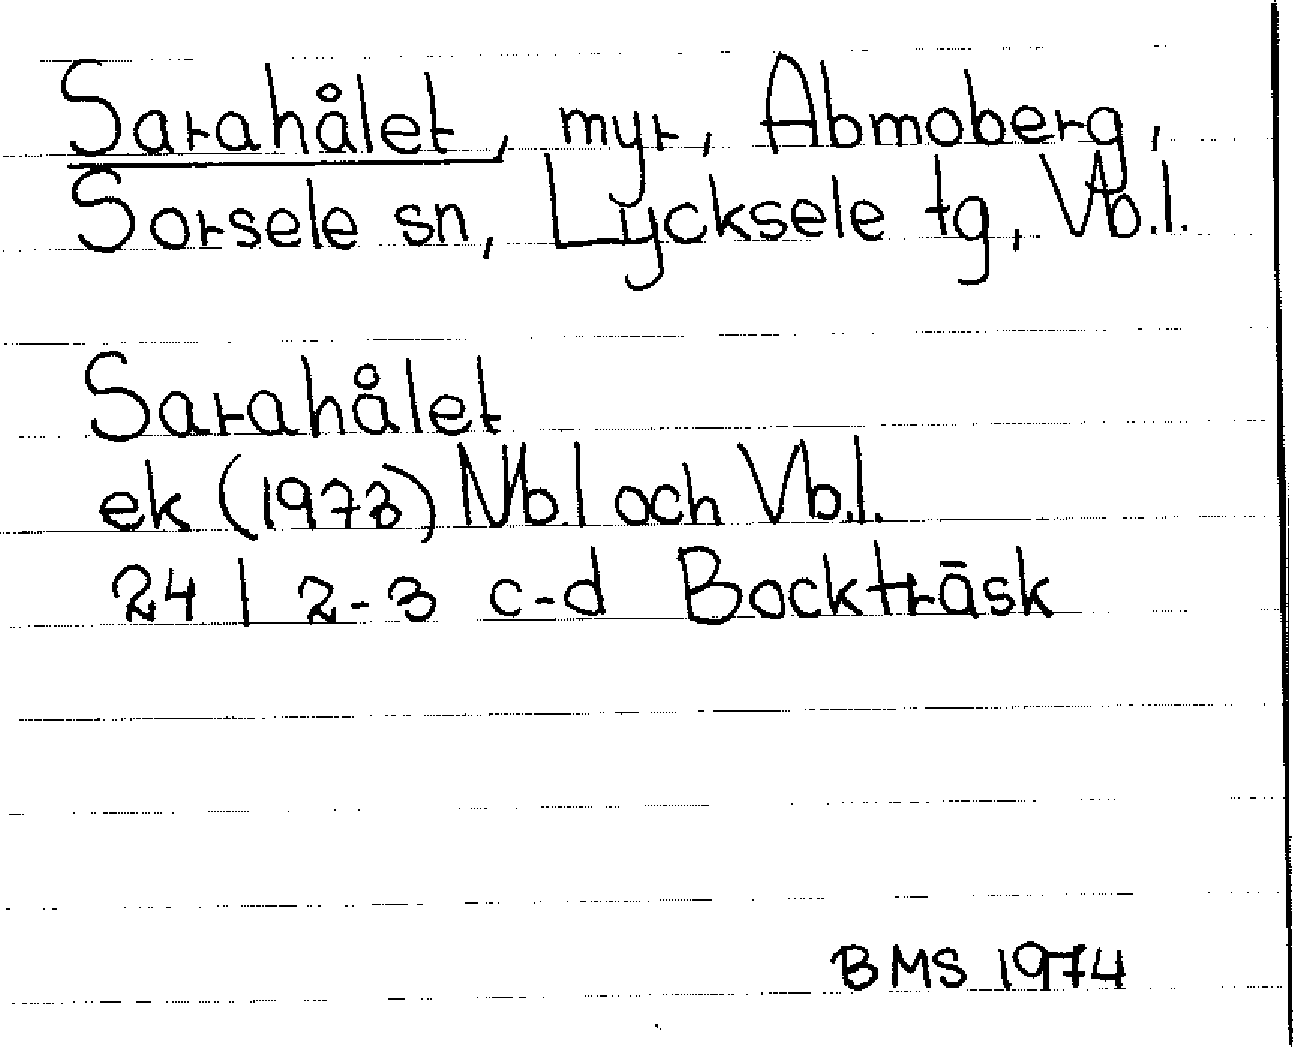 Sarahålet, myr, Abmoberg,
Sorsele sn, Lycksele tg, Vb.l.
Sarahålet
ek (1973) Nb.l och Vb.l.
24 I 2-3 c-d Bockträsk
BMS 1974